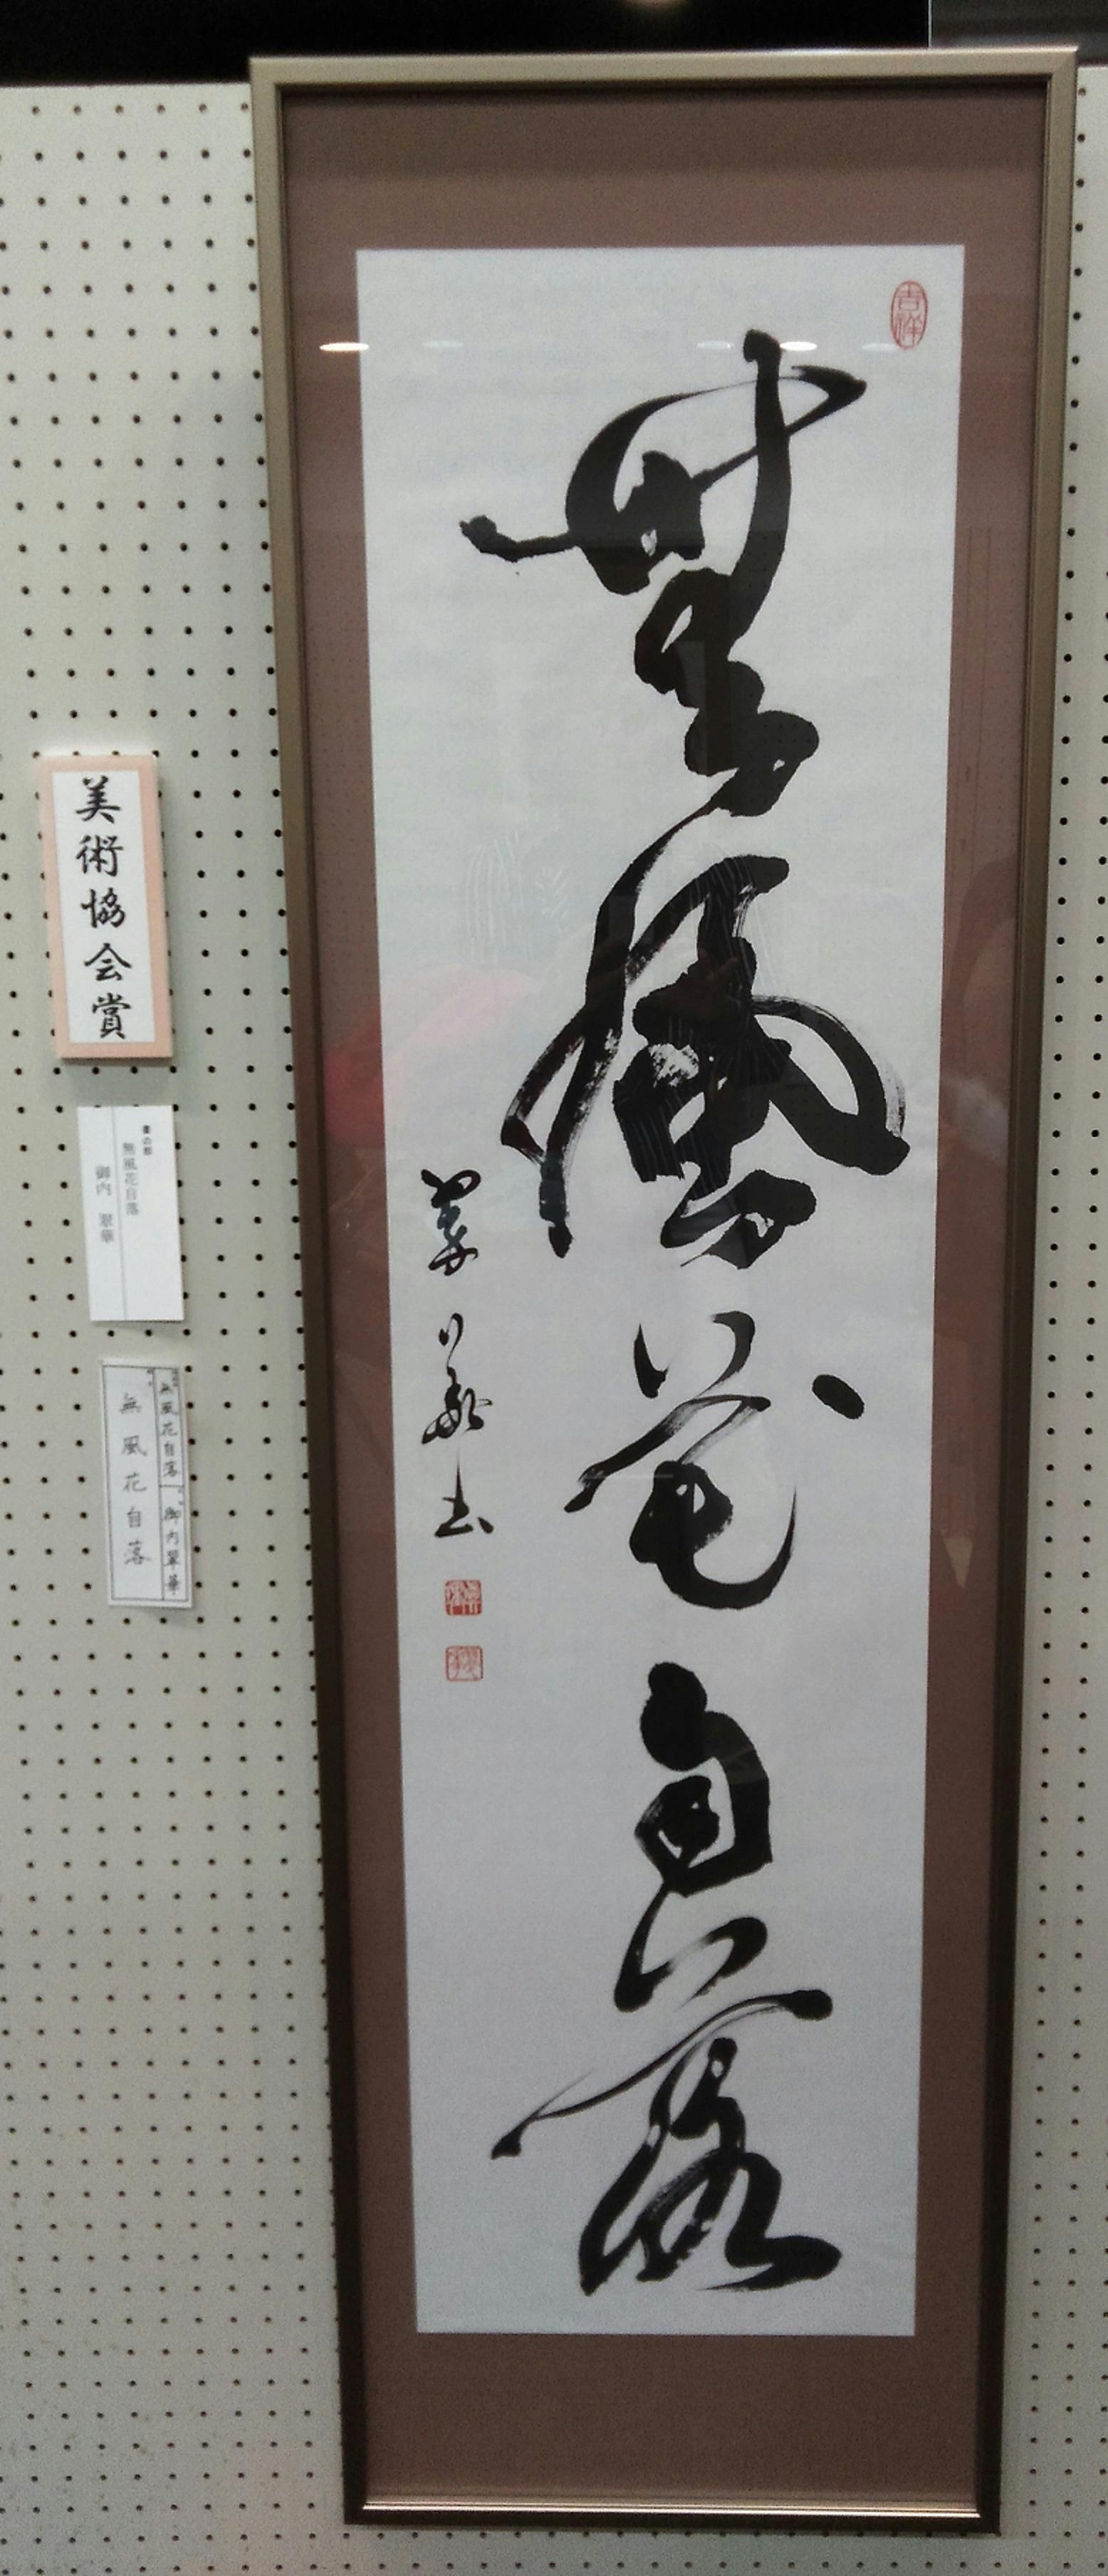 吉祥
無風花自落
翠華書
美術協会賞
書の部
無風花自落
御内 翠華
無風花自落 御内翠華
無風花自落